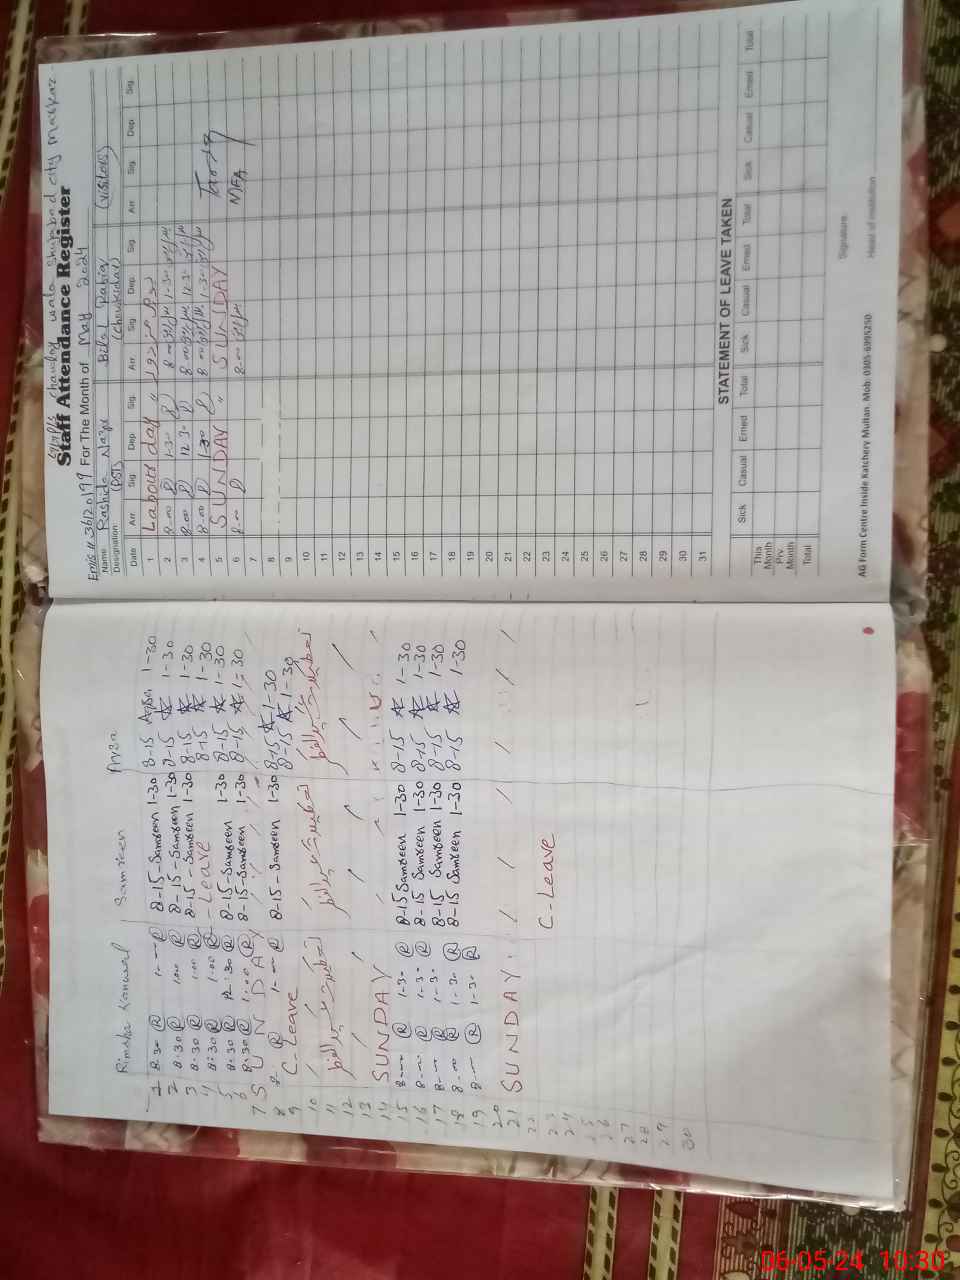 Staff Attendance Register
Emis # 36120199 For The Month of May 2024
Name Rashida Naz Bilal Rabia (visitors)
Designation (PST) (Chowkidar)
Date Arr. Sig Dep Sig. Arr. Sig Dep. Sig. Arr. Sig. Dep. Sig.
1 Labour day "
2 8-00 1-30 8-00 1-30
3 8-00 12-30 8-00 12-30
4 8-00 1-30 8-00 1-30
5 SUNDAY " SUNDAY
6 8-00 8-00 MEA
7
8
9
10
11
12
13
14
15
16
17
18
19
20
21
22
23
24
25
26
27
28
29
30
31
STATEMENT OF LEAVE TAKEN
Sick Casual Erned Total Sick Casual Erned Total Sick Casual Erned Total
This Month
Prv. Month
Total
Signature
Head of institution
AG Form Centre Inside Katchery Multan. Mob: 0305-6995250
Rimsha Kanwal Samreen Ayza
1 8-30 R 1-- R 8-15-Samreen 1-30 8-15 Ayza 1-30
2 8-30 R 1-00 R 8-15-Samreen 1-30 8-15 1-30
3 8-30 R 1-00 R 8-15-Samreen 1-30 8-15 1-30
4 8-30 R 1-00 R -Leave 8-15 1-30
5 8-30 R 12-30 R 8-15-Samreen 1-30 8-15 1-30
6 8-30 R 1-00 R 8-15-Samreen 1-30 8-15 1-30
7 SUNDAY
8 8-- R 1-- R 8-15-Samreen 1-30 8-15 1-30
9 C-Leave 8-15 1-30
10
11
12
13
14 SUNDAY
15 8--- R 1-30 R 8-15 Samreen 1-30 8-15 1-30
16 8--- R 1-30 R 8-15 Samreen 1-30 8-15 1-30
17 8--- R 1-30 8-15 Samreen 1-30 8-15 1-30
18 8-00 R 1-30 R 8-15 Samreen 1-30 8-15 1-30
19 8--- R 1-30 R
20
21 SUNDAY
22
23 C-Leave
24
25
26
27
28
29
30
06-05-24 10:30